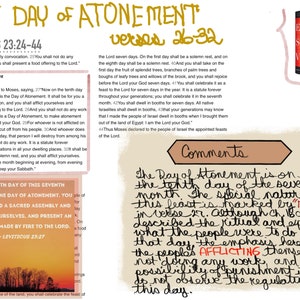 DAY of ATONEMENT
verses 26-32
23:24-44
You shall not do any
shall present a food offering to the Lord."
the Lord seven days. On the first day shall be a solemn rest, and on
the eighth day shall be a solemn rest. And you shall take on the
first day the fruit of splendid trees, branches of palm trees and
boughs of leafy trees and willows of the brook, and you shall rejoice
before the Lord your God seven days. You shall celebrate it as a
feast to the Lord for seven days in the year. It is a statute forever
throughout your generations; you shall celebrate it in the seventh
month. You shall dwell in booths for seven days. All native
Israelites shall dwell in booths, that your generations may know
that I made the people of Israel dwell in booths when I brought them
out of the land of Egypt: I am the Lord your God."
Thus Moses declared to the people of Israel the appointed feasts
of the Lord.
to Moses, saying, "Now on the tenth day
Day of Atonement. It shall be for you a
on, and you shall afflict yourselves and
the Lord. And you shall not do any work
a Day of Atonement, to make atonement
your God. For whoever is not afflicted on
cut off from his people. And whoever does
day, that person I will destroy from among his
do any work. It is a statute forever
rations in all your dwelling places. It shall be
rest, and you shall afflict yourselves.
month beginning at evening, from evening
keep your Sabbath."
TH DAY OF THIS SEVENTH
DAY OF ATONEMENT. YOU
A SACRED ASSEMBLY AND
OURSELVES, AND PRESENT AN
MADE BY FIRE TO THE LORD.
LEVITICUS 23:27
Comments
The Day of Atonement is on
the tenth day of the seve
month. The special nature
this feast is marked by
in verse 27. Although
described the ritual and
what the people were to do
that day, the emphasis here
the people's AFFLICTING them
not doing any work, and
possibility of punishment
do not observe the regulatio
this day.